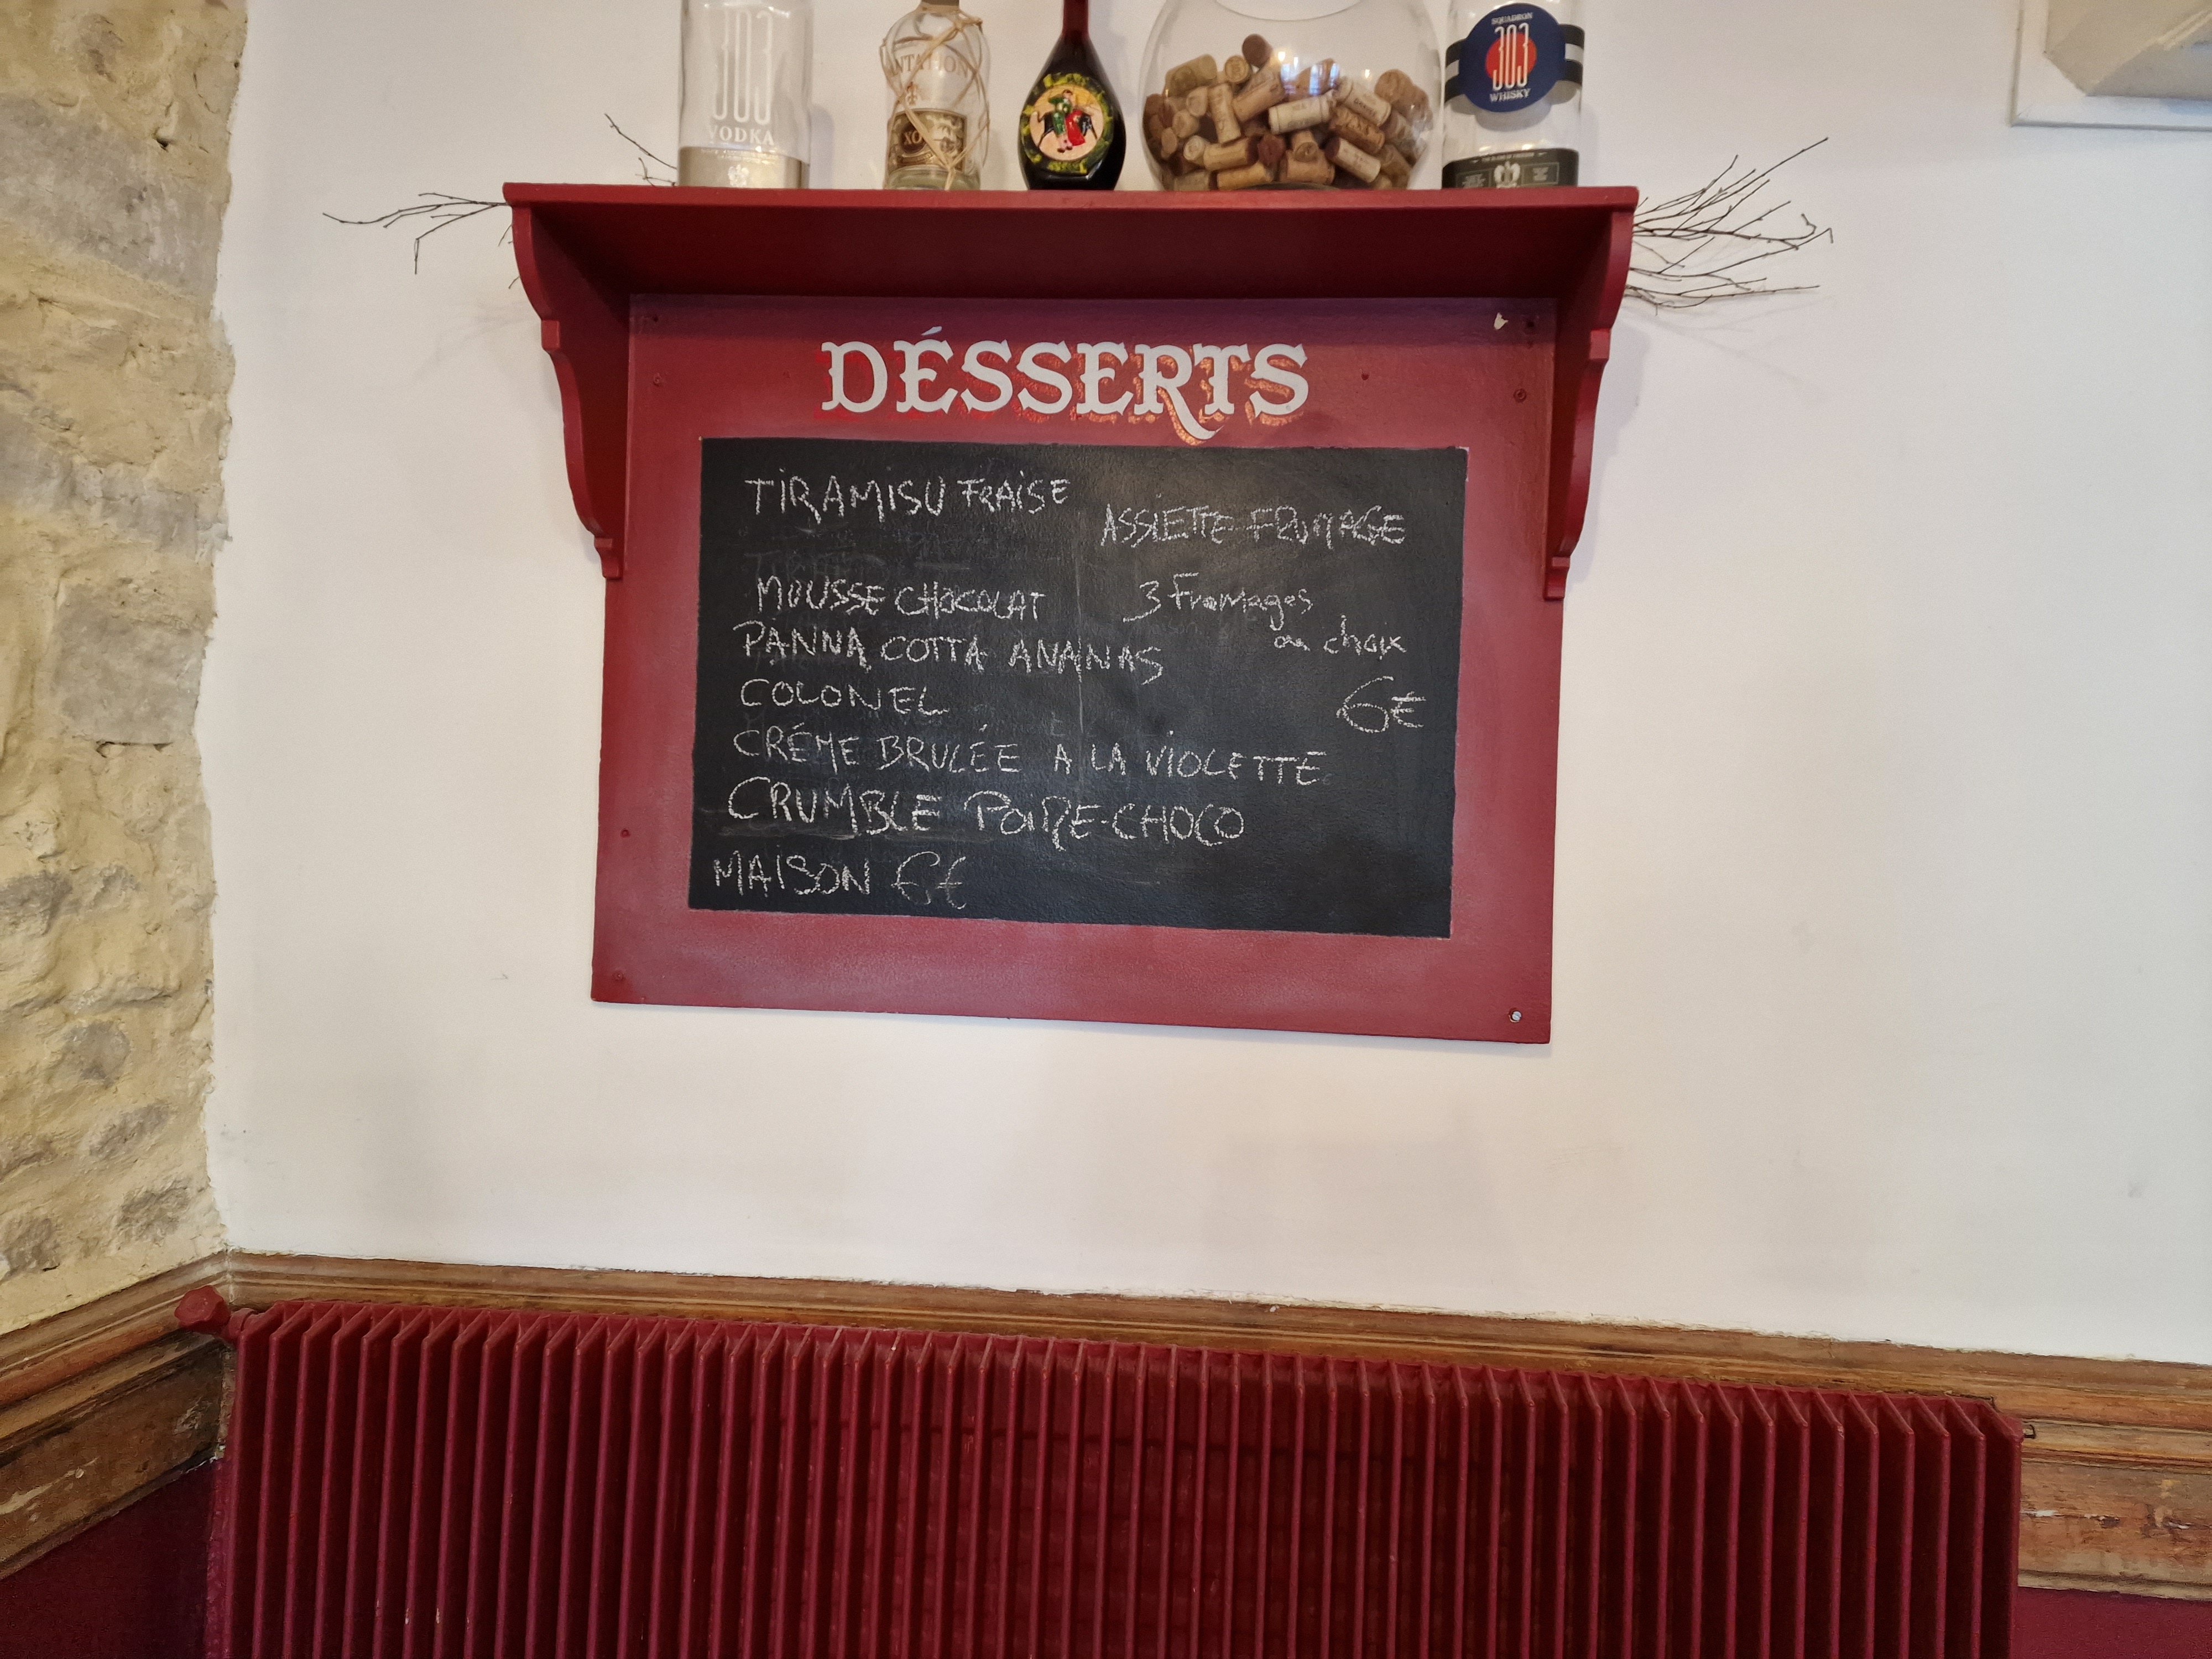 303
VODKA
XO
SQUADRON
303
WHISKY
DÉSSERTS
TIRAMISU FRAISE
MOUSSE CHOCOLAT
PANNA COTTA ANANAS
COLONEL
CRÉME BRULÉE A LA VIOLETTE
CRUMBLE POIRE-CHOCO
MAISON 6€
ASSIETTE FROMAGE
3 Fromages
au choix
6€